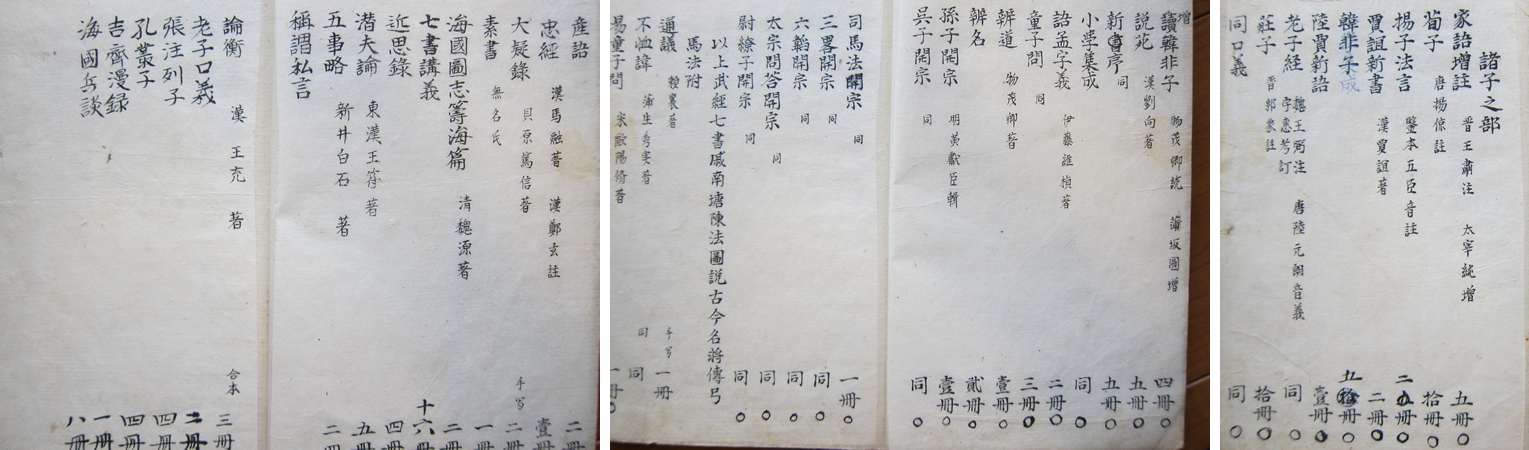 諸子之部
家語増註 晋王肅注 太宰純増 五冊○
荀子 唐揚倞註 拾冊○
揚子法言 鑒本五臣音註 二冊○
賈誼新書 漢賈誼著 二冊○
韓非子 五冊○
陸賈新語 壹冊○
老子経 魏王弼注 宇惠考訂 唐陸元朗音義 同○
莊子 晋郭象註 拾冊○
同口義 同○
増讀韓非子 物茂卿読 蒲坂圓増 四冊○
説苑 漢劉向著 五冊○
新序 同 五冊○
小學集成 同○
語孟字義 伊藤維楨著 二冊○
童子問 同 三冊○
辨道 物茂卿著 壹冊○
辨名 貳冊○
孫子開宗 明黄獻臣輯 壹冊○
呉子開宗 同 同○
司馬法開宗 同 一冊○
三畧開宗 同 同○
六韜開宗 同 同○
太宗問答開宗 同 同○
尉繚子開宗 同 同○
以上武經七書戚南塘陳法圖説古今名将傳弓
馬法附
通議 頼襄著 手写 一冊
不恤緯 蒲生秀実著 同 同
易童子問 宋歐陽脩著 一冊○
産語 二冊
忠經 漢馬融著 漢鄭玄註 壹冊
大疑錄 貝原篤信著 手写 二冊
素書 無名氏 一冊
海國圖志籌海篇 清魏源著 二冊
七書講義 十六冊
近思錄 四冊
潜夫論 東漢王符著 五冊
五事略 新井白石著 二
稱謂私言
論衡 漢王充著 合本 三冊
老子口義 二冊
張注列子 四冊
孔叢子 四冊
吉齊漫録 一冊
海國兵談 八冊